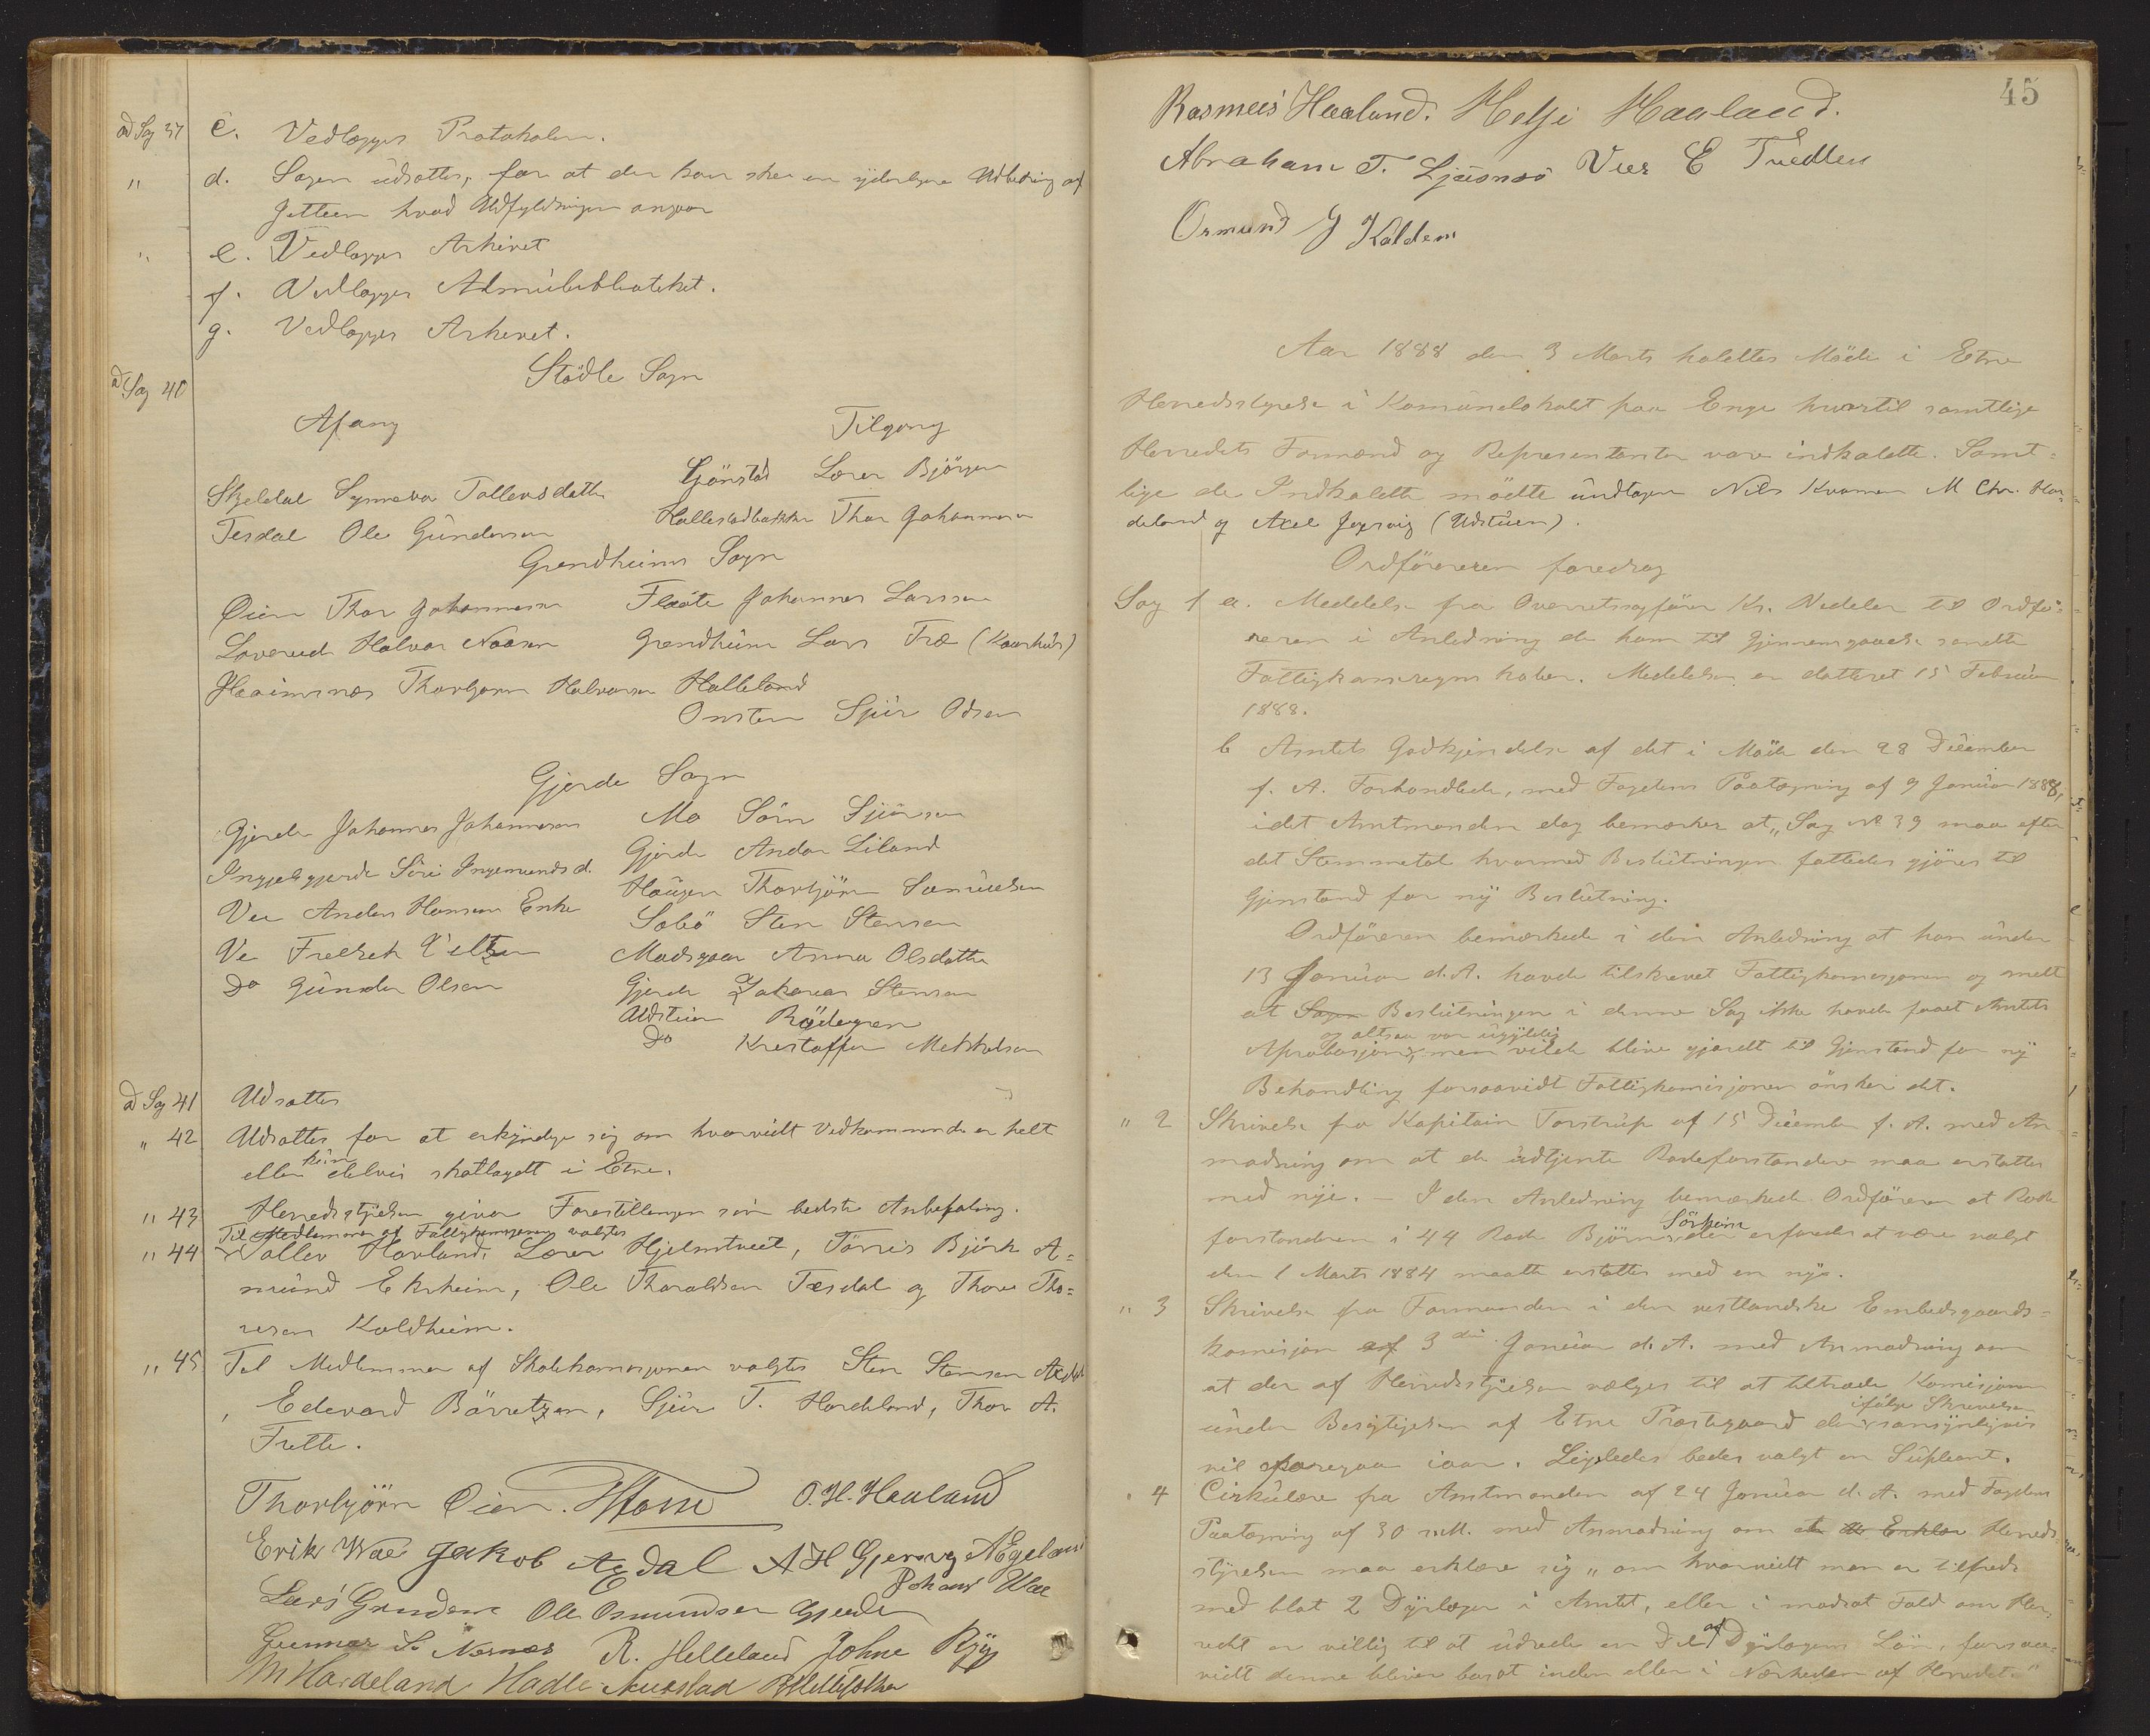 ad Sag 37 c. Vedlægges Protokolen.
" d. Sagen udsattes, for at der kan ske en yderligere Udbedring af
Jetteen hvad Udfyldningen angaar
" e. Vedlægges Arkivet
f. Vedlægges Almuebibliotheket.
g. Vedlægges Arkivet.
ad Sag 40 Stödle Sogn
Afgang Tilgang
Skjeldal Synneva Tollevsdatter
Grönstad Lærer Björgen
Tesdal Ole Gunderson
Hallestadbakken Thor Johannesen
Grendheims Sogn
Øien Thor Johannesen
Flaate Johannes Larsen
Halvor Naasen
Grendheim Lars Træ (Kaarhus)
Thorbjørn Halvorsen
Halleland
Onsten Sjur Odsen
Gjerde Sogn
Gjerde Johannes Johannesen
Mo Sörn Sjursen
Siri Ingemundsd.
Gjerde Andar Liland
Ve Anders Hansen Enke
Haugen Thorbjörn Samuelsen
Sæbö Sten Stensen
Ve
Madsgaar Anna Olsdatter
Do Gunder Olsen
Gjerde Zakarias Stensen
Udstuen Rödegren
Do Kristoffer Mekkelsen
ad Sag 41 Udsattes
" 42 Udsattes for at erkyndige sig om hvorvidt Vedkommende er helt
eller kun delvis skatlagdt i Etne.
" 43 Herredsstyrelsen giver Forestillingen sin bedste Anbefaling.
Til Medlemmer af Fattigkomisjonen valgtes
" 44 Tollev Havland, Lærer Hjelmtveit, Törris Björk A=
mund Ekrheim, Ole Tharaldsen Tesdal og Thore Tho=
resen Koldheim.
" 45 Til Medlemmer af Skolekomisjonen valgtes Sten Stensen Axdal
, Edevard Börretzen, Sjur T. Hardeland, Thor A.
Frette.
Thorbjörn Øien. O. H. Haaland
Erik Wae Jakob Axdal A H Gjersvig A Egeland
Johans Wae
Lars Grindem Ole Osmundsen Gjerde
Gunnar S. Nernæs R. Helleland Johne Rygg
M Hardeland Hadle
45
Rasmus Haaland. Helje Haaland.
Abraham T. Ljusnæs
Osmund J Kaldem
Aar 1888 den 3 Marts holdttes Möde i Etne
Herredsstyrelse i Komunelokalet paa Enge hvortil samtlige
Herredets Formænd og Representanter vare indkaldtte. Samt=
lige de Indkaldtte mödte undtagen Nils Kvamen M Chr. Har=
deland og Axel Jersvig (Udstuen).
Ordföreren foredrog
Sag 1 a. Meddelelse fra Overretssagförer Kr. Nedeler til Ordfö=
reren i Anledning de ham til Gjennemgaaelse sendte
Fattigkasseregnskaber. Meddelelsen er datteret 15 Februar
1888.
b Amtets Godkjendelse af det i Möde den 28 December
f. A. Forhandlede, med Fogdens Paategning af 9 Januar 1888,
idet Amtmanden dog bemærker at "Sag No 39 maa efter
det Stemmetal hvormed Beslutningen fattedes gjöres til
Gjenstand for ny Beslutning.
Ordföreren bemærkede i den Anledning at han under
13 Januar d. A. havde tilskrevet Fattigkomisjonen og meldt
at Sagen Beslutningen i denne Sag ikke havde faaet Amtets
og altsaa var ugyldig
Aprobasjon, men vilde blive gjordt til Gjenstand for ny
Behandling forsaavidt Fattigkomisjonen önsker det.
" 2 Skrivelse fra Kapitain Torstrup af 15 December f. A. med An
modning om at de udtjente Rodeforstandere maa erstattes
med nye. — I den Anledning bemærkede Ordföreren at Rode
forstanderen i 44 Rode Björn Sörheim erfaredes at være valgt
den 1 Marts 1884 maatte erstattes med en nye.
" 3 Skrivelse fra Formanden i den vestlandske Embedsgaards=
komisjon af 3die Januar d. A. med Anmodning om
at der af Herredsstyrelsen vælges til at tiltræde Komisjonen
under Besigtigelsen af Etne Præstegaard der ifölge Skrivelsen sansynligvis
vil foregaa iaar. Ligeledes bedes valgt en Supleant.
" 4 Cirkulære fra Amtmanden af 24 Januar d. A. med Fogdens
Paategning af 30 s. M. med Anmodning om at Herreds
styrelsen maa erklære sig "om hvorvidt man er tilfreds
med blot 2 Dyrlæger i Amtet, eller i modsat Fald om Her=
redet er villig til at udrede en Del af Dyrlægens Lön, forsaa=
vidt denne bliver bosat inden eller i Nærheden af Herredet."